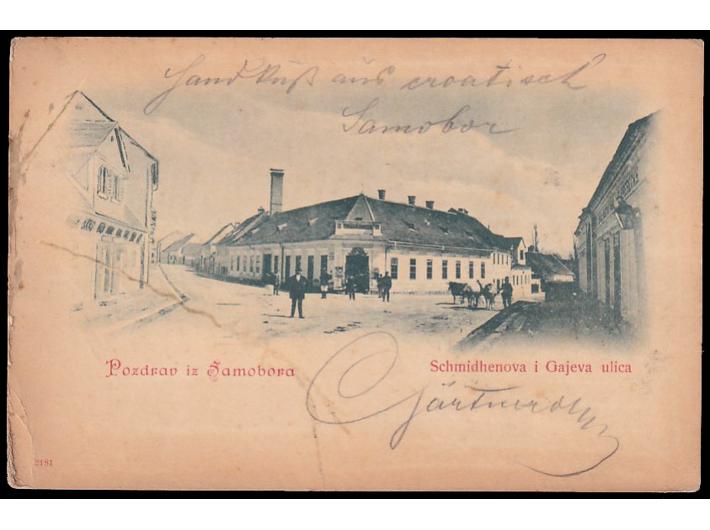 Handkuß aus croatisch
Samobor
Pozdrav iz Samobora
Schmidhenova i Gajeva ulica
2181